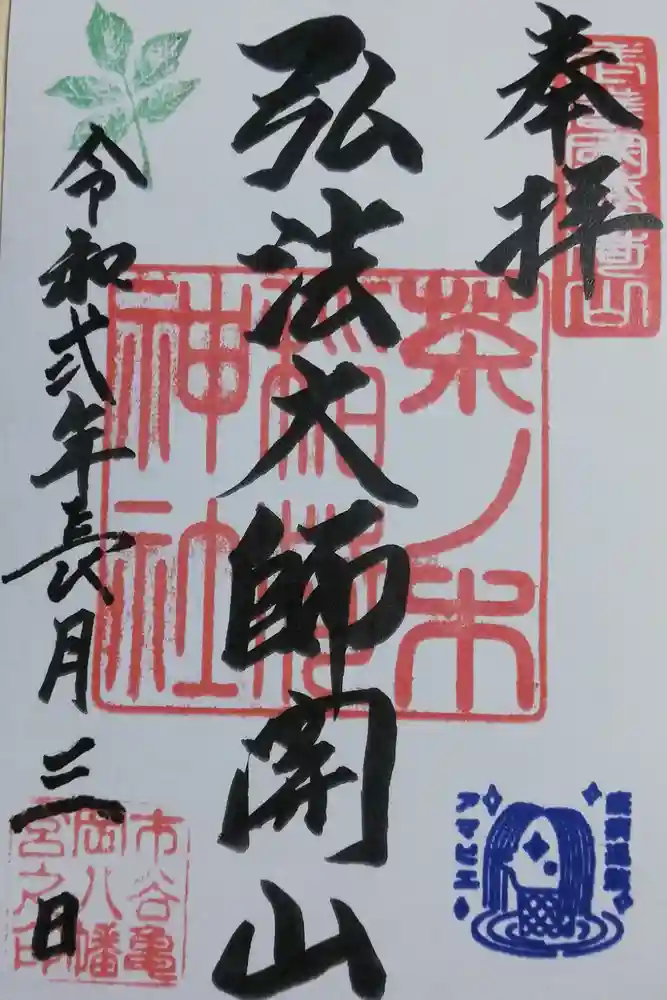 奉拝
弘法大師開山
茶ノ木
稲荷
神社
令和弐年長月二日
市谷亀
岡八幡
宮之印
アマビエ